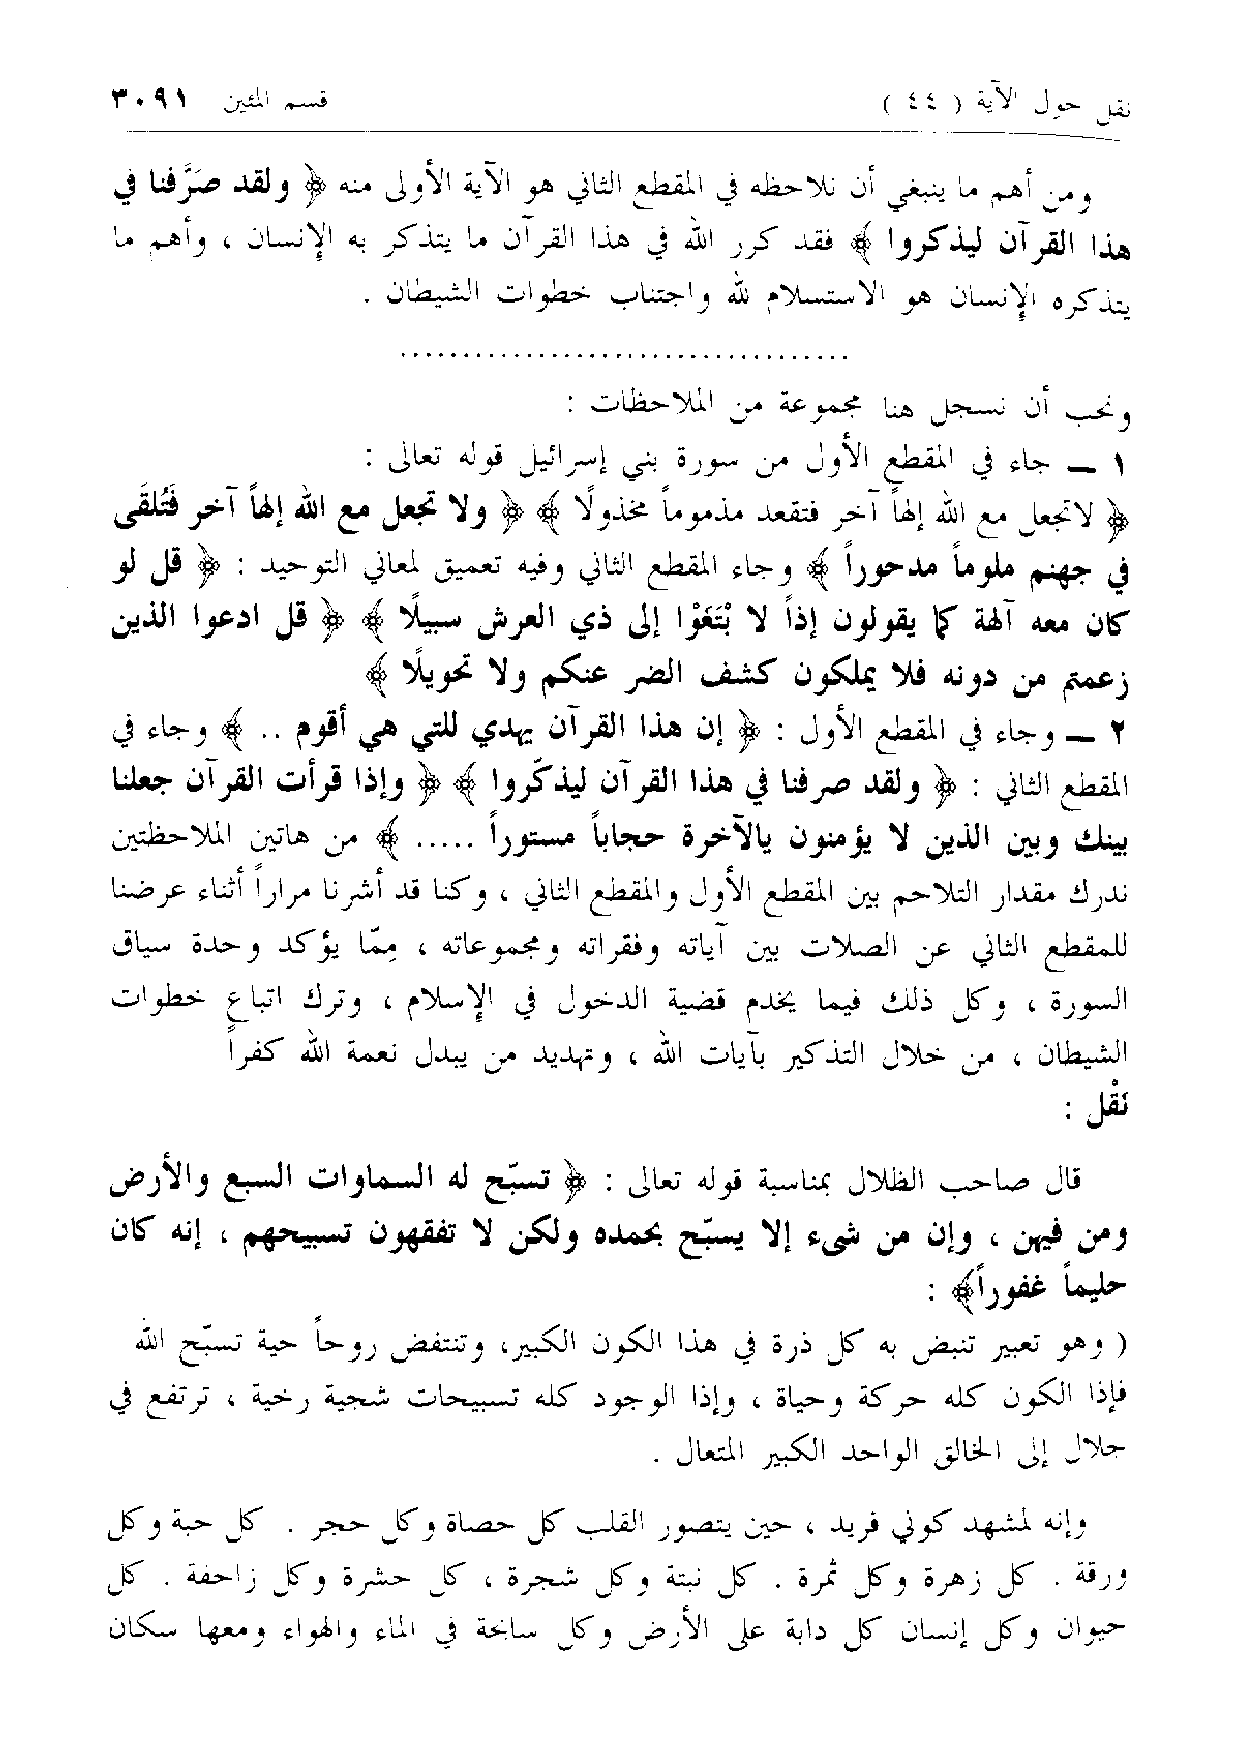 نقل حول الآية ( ٤٤ ) قسم المئين ٣٠٩١
ومن أهم ما ينبغي أن نلاحظه في المقطع الثاني هو الآية الأولى منه ﴿ ولقد صَرَّفنا في
هذا القرآن ليذكروا ﴾ فقد كرر الله في هذا القرآن ما يتذكر به الإنسان ، وأهم ما
يتذكره الإنسان هو الاستسلام لله واجتناب خطوات الشيطان .
...................................
ونحب أن نسجل هنا مجموعة من الملاحظات :
١ ــ جاء في المقطع الأول من سورة بني إسرائيل قوله تعالى :
﴿ لاتجعل مع الله إلهاً آخر فتقعد مذموماً مخذولًا ﴾ ﴿ ولا تجعل مع الله إلهاً آخر فَتُلقَى
في جهنم ملوماً مدحوراً ﴾ وجاء المقطع الثاني وفيه تعميق لمعاني التوحيد : ﴿ قل لو
كان معه آلهة كما يقولون إذاً لا بْتَغَوْا إلى ذي العرش سبيلًا ﴾ ﴿ قل ادعوا الذين
زعمتم من دونه فلا يملكون كشف الضر عنكم ولا تحويلًا ﴾
٢ ــ وجاء في المقطع الأول : ﴿ إن هذا القرآن يهدي للتي هي أقوم .. ﴾ وجاء في
المقطع الثاني : ﴿ ولقد صرفنا في هذا القرآن ليذكّروا ﴾ ﴿ وإذا قرأت القرآن جعلنا
بينك وبين الذين لا يؤمنون بالآخرة حجاباً مستوراً ..... ﴾ من هاتين الملاحظتين
ندرك مقدار التلاحم بين المقطع الأول والمقطع الثاني ، وكنا قد أشرنا مراراً أثناء عرضنا
للمقطع الثاني عن الصلات بين آياته وفقراته ومجموعاته ، مِمّا يؤكد وحدة سياق
السورة ، وكل ذلك فيما يخدم قضية الدخول في الإسلام ، وترك اتباع خطوات
الشيطان ، من خلال التذكير بآيات الله ، وتهديد من يبدل نعمة الله كفراً
نَقْل :
قال صاحب الظلال بمناسبة قوله تعالى : ﴿ تسبّح له السماوات السبع والأرض
ومن فيهن ، وإن من شيء إلا يسبّح بحمده ولكن لا تفقهون تسبيحهم ، إنه كان
حليماً غفوراً﴾ :
( وهو تعبير تنبض به كل ذرة في هذا الكون الكبير، وتنتفض روحاً حية تسبّح الله
فإذا الكون كله حركة وحياة ، وإذا الوجود كله تسبيحات شجية رخية ، ترتفع في
جلال إلى الخالق الواحد الكبير المتعال .
وإنه لمشهد كوني فريد ، حين يتصور القلب كل حصاة وكل حجر . كل حبة وكل
ورقة . كل زهرة وكل ثمرة . كل نبتة وكل شجرة ، كل حشرة وكل زاحفة . كل
حيوان وكل إنسان كل دابة على الأرض وكل سابحة في الماء والهواء ومعها سكان